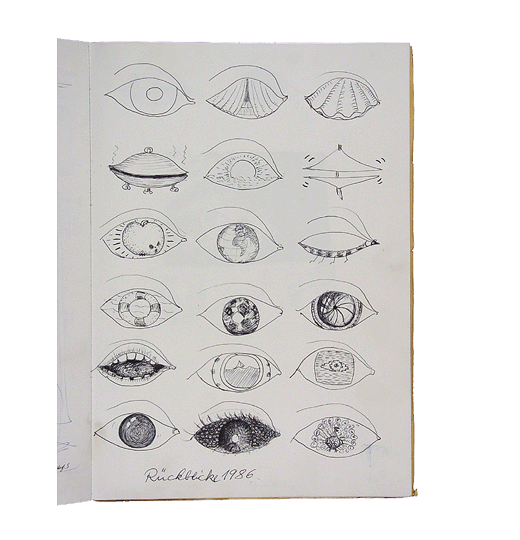 Rückblicke 1986